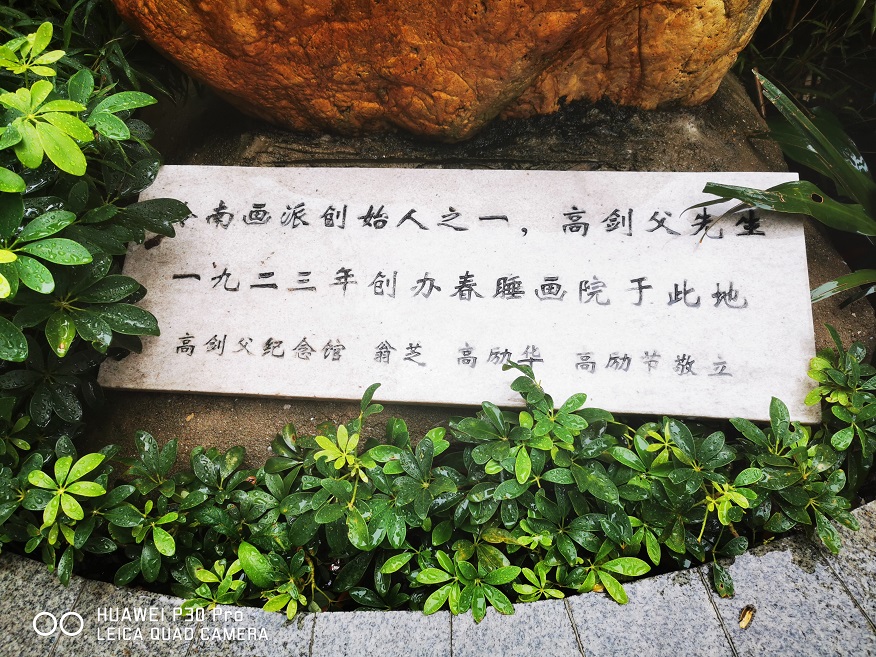 南画派创始人之一，高剑父先生
一九二三年创办春睡画院于此地
高剑父纪念馆 翁芝 高励华 高励节敬立
HUAWEI P30 Pro
LEICA QUAD CAMERA